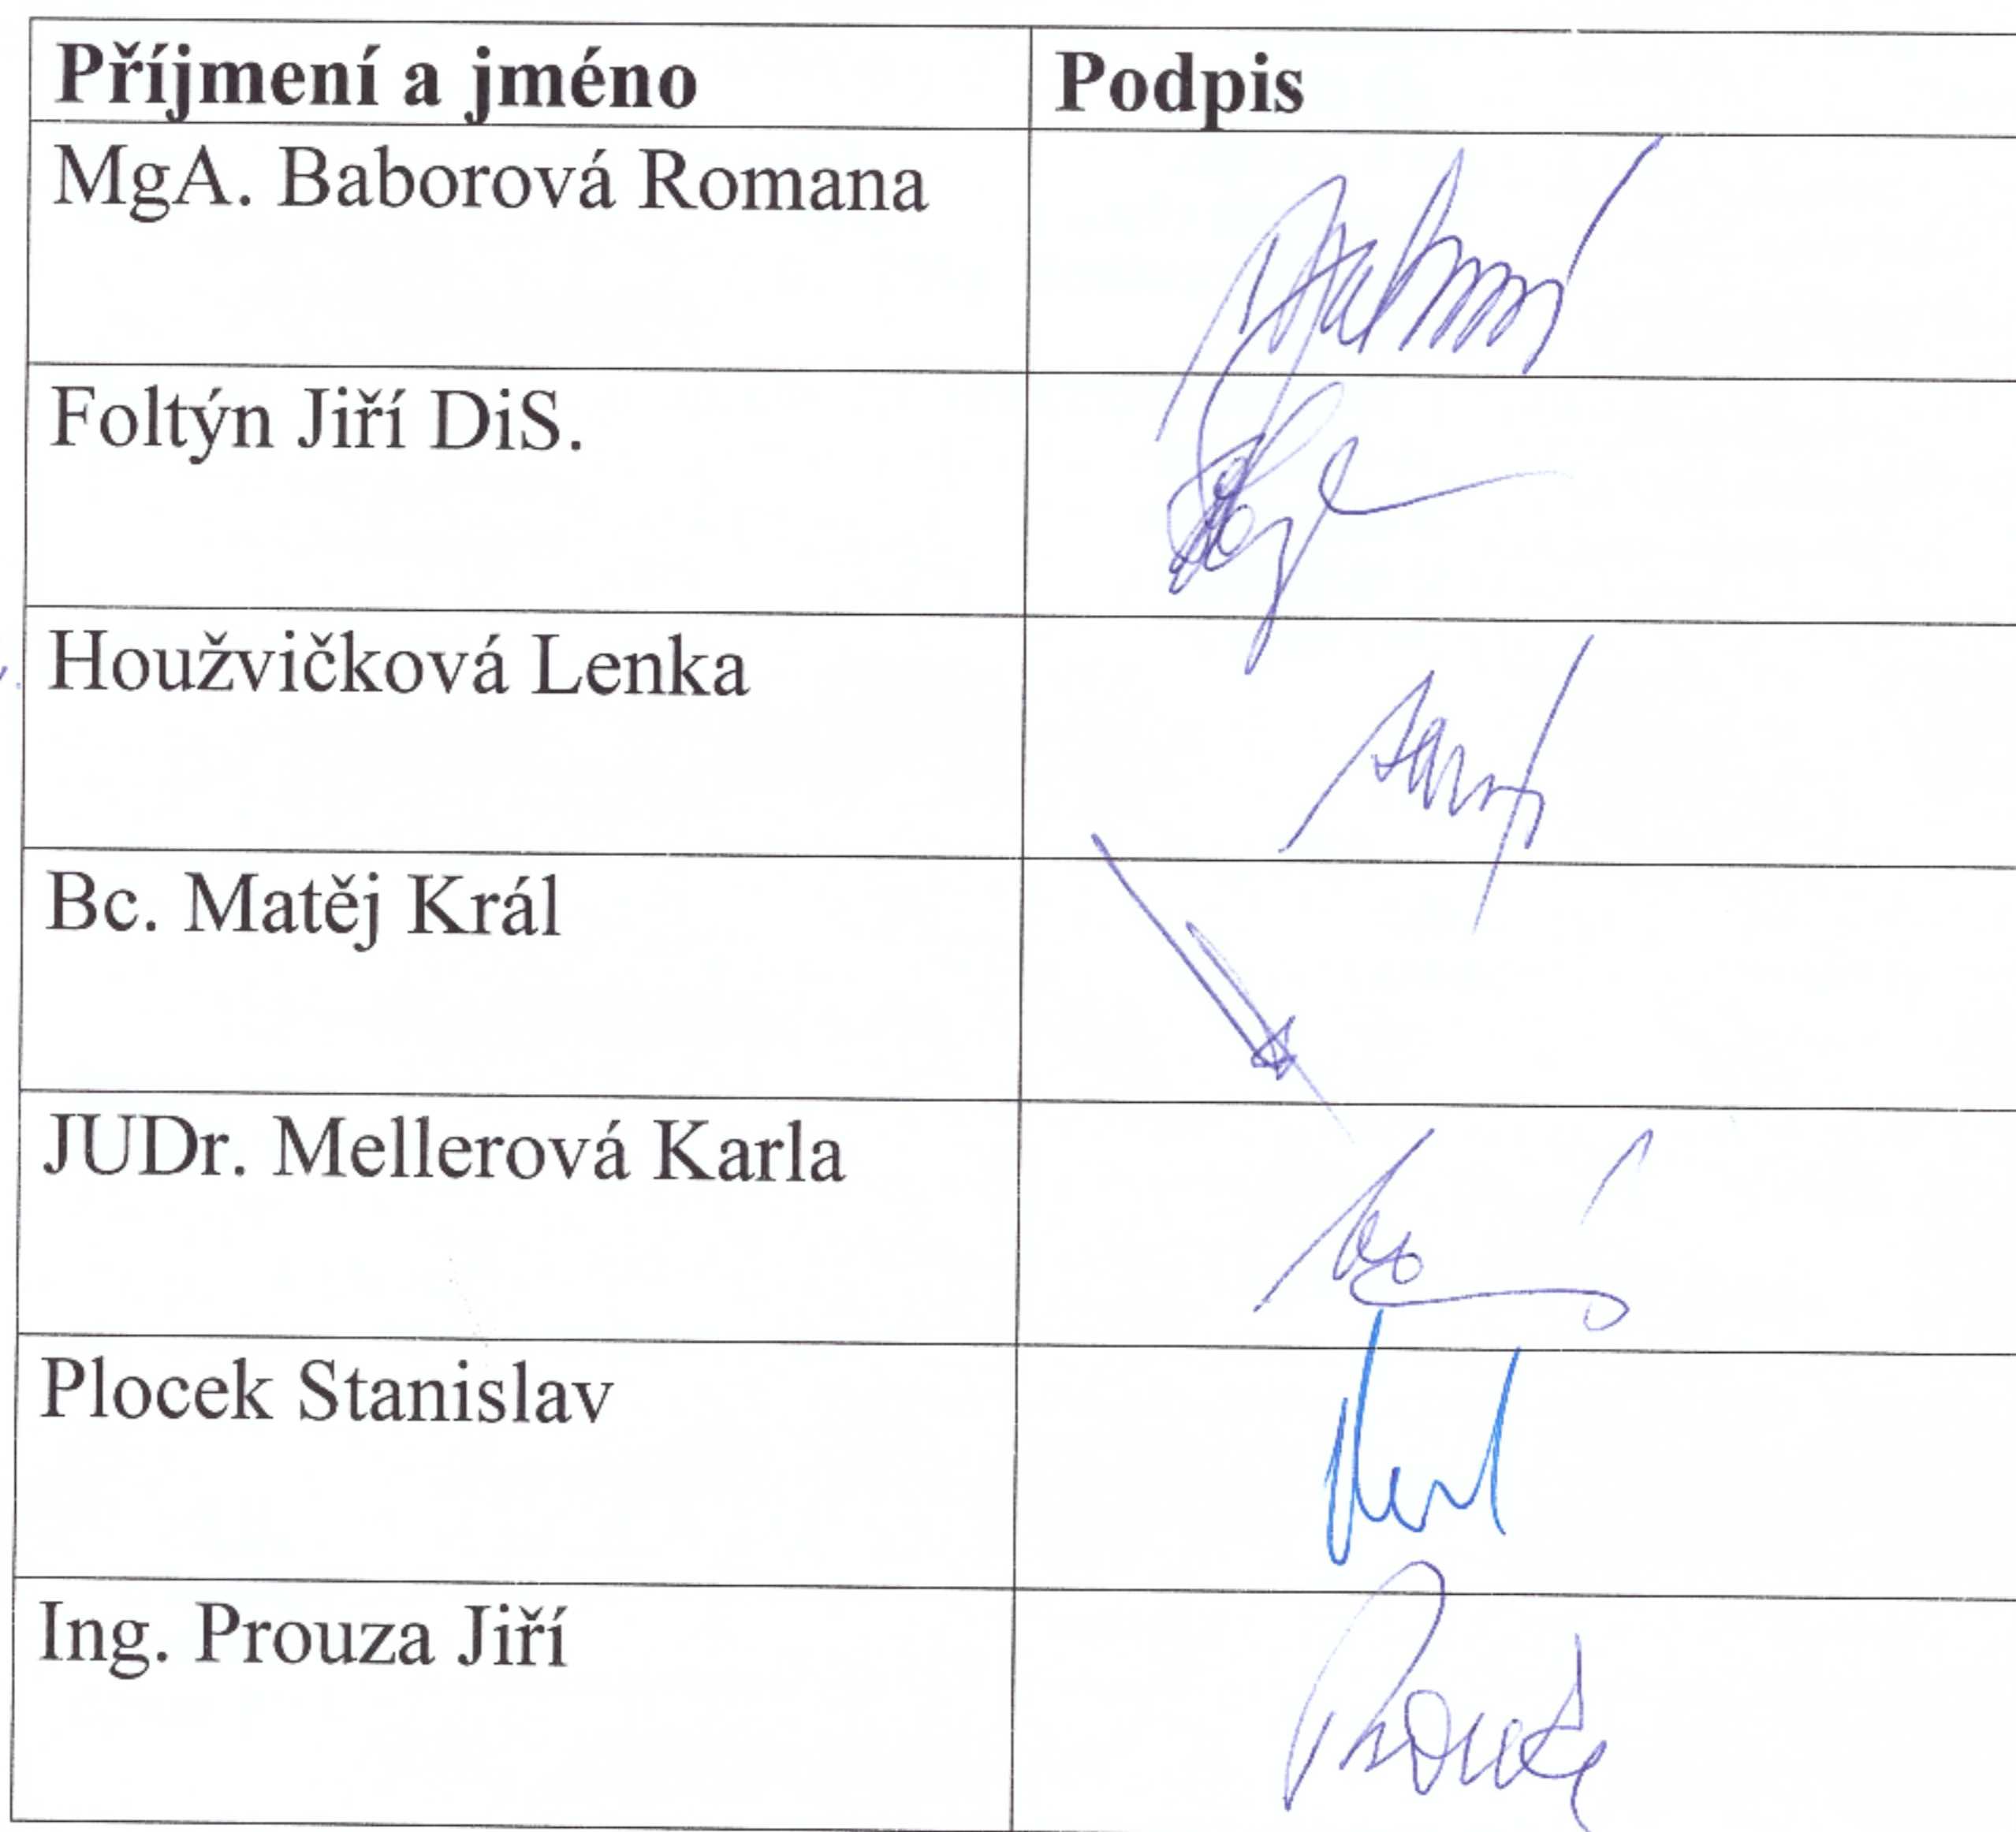 Příjmení a jméno Podpis
MgA. Baborová Romana
Foltýn Jiří DiS.
Houžvičková Lenka
Bc. Matěj Král
JUDr. Mellerová Karla
Plocek Stanislav
Ing. Prouza Jiří Prouza